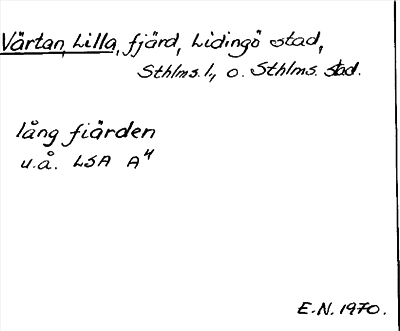 Värtan, Lilla, fjärd, Lidingö stad,
Sthlms. l., o. Sthlms. stad.
lång fiärden
u.å. LSA A4
E.N. 1970.